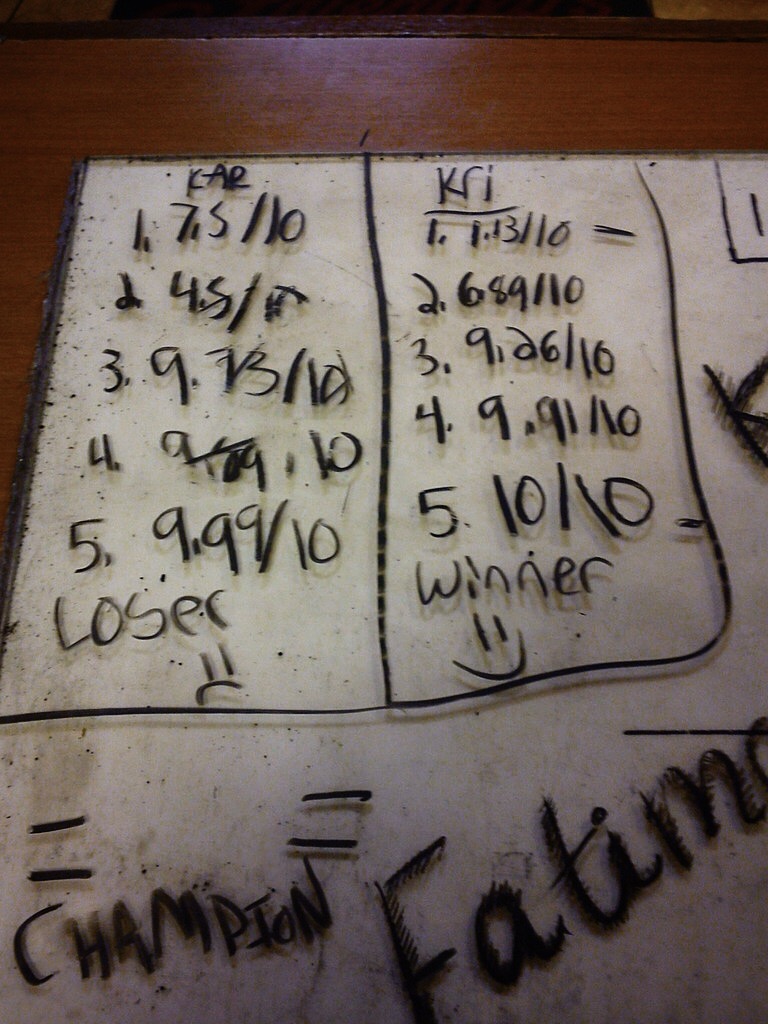 KAR
1. 7.5/10
2. 4.5/
3. 9.73/10
4. 10
5. 9.99/10
Loser
Kri
1. 1.13/10 =
2. 6.89/10
3. 9.26/10
4. 9.91/10
5. 10/10 -
Winner
CHAMPION
Fatima